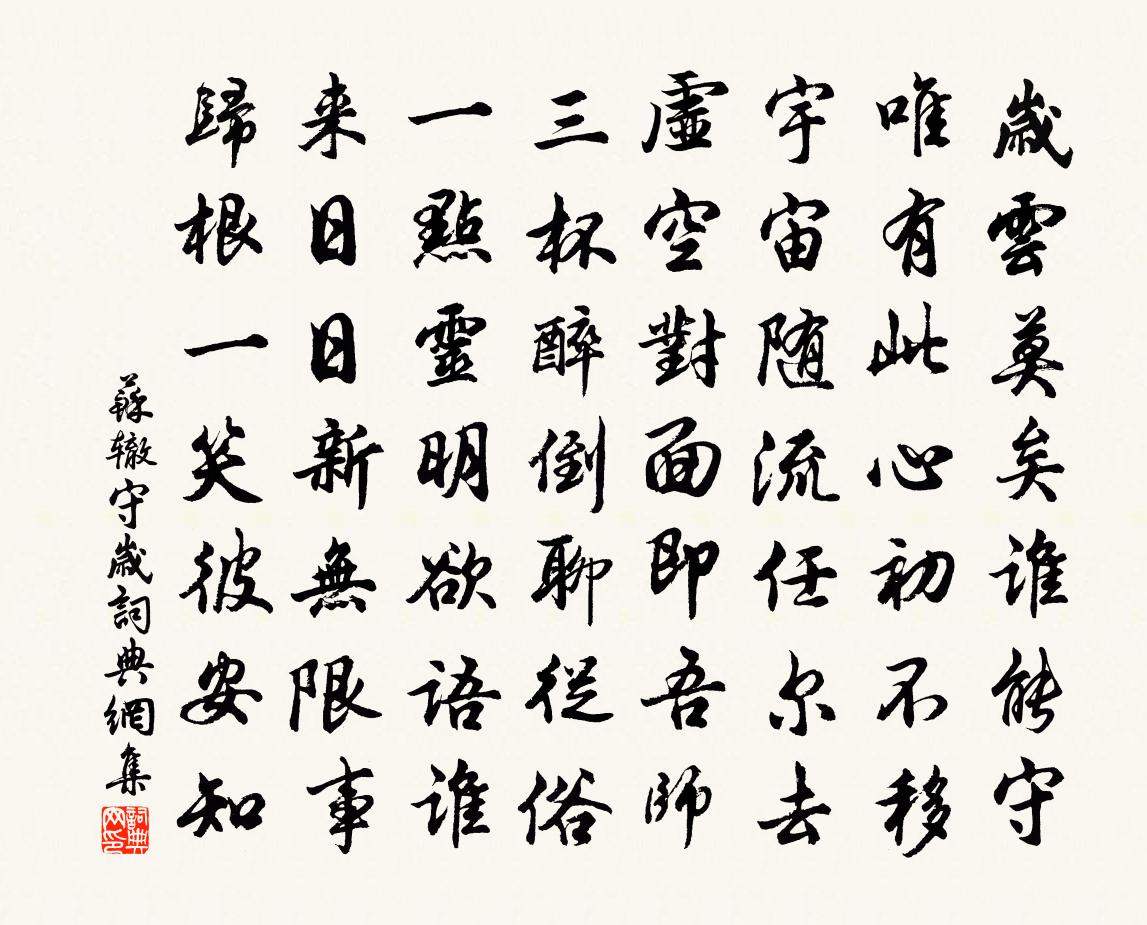 歲雲莫矣誰能守
唯有此心初不移
宇宙随流任尔去
虛空對面即吾師
三杯醉倒聊從俗
一點靈明欲語誰
来日日新無限事
歸根一笑彼安知
蘇辙守歲詞典網集
詞典网印